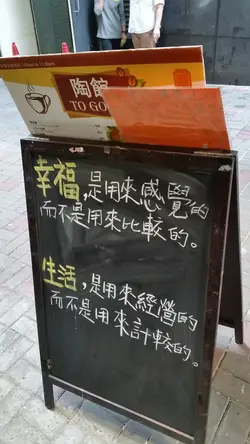 陶館
TO GO
幸福,是用來感覺的
而不是用來比較的。
生活,是用來經營的
而不是用來計較的。